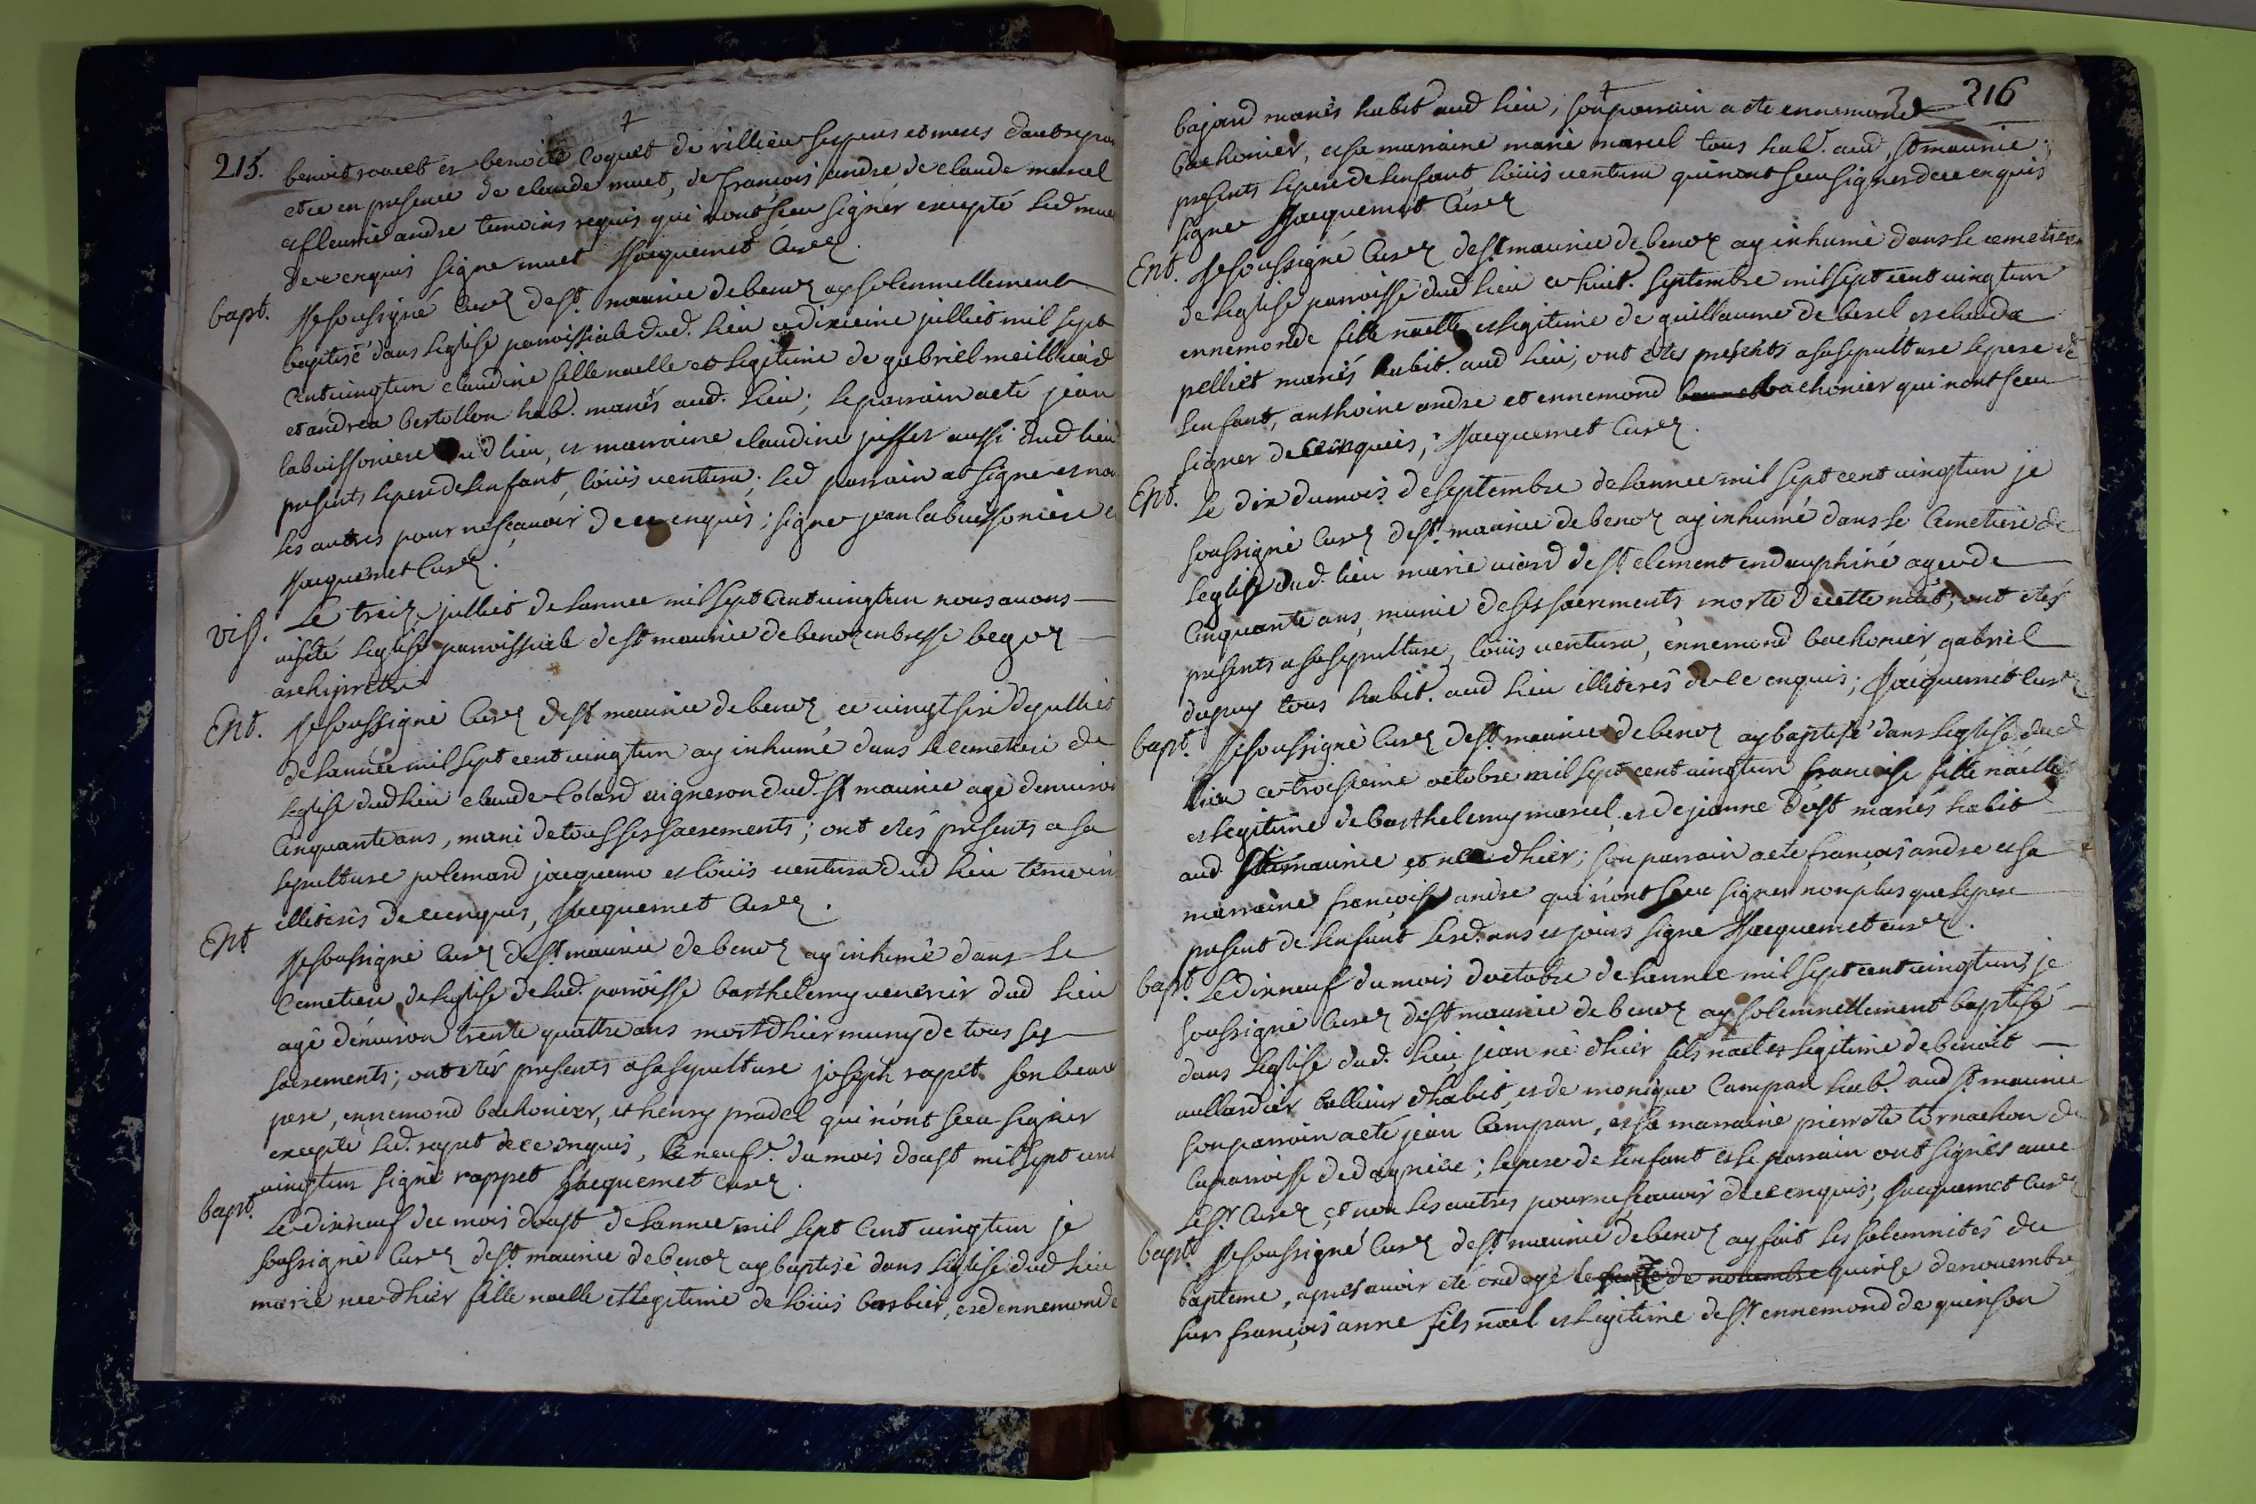 215.
benoit rovet et benoite Coquet de villieu ses peres et meres d'autre par
et ce en presence de claude muet, de françois andré de claude marcel
et fleurie andre temoins requis qui n'ont sceu signer excepté led muet
de ce enquis signe muet Jacquemet Curéz.
bapt. Je soussigné Curéz de st. maurice de benoz ay solemnellement
baptisé dans leglise parroissiale dud. lieu ce dixieme julliet mil sept
cent vingt un claudine fille naelle et legitime de gabriel meilluiard
et andrea bertollon hab. mariés aud. lieu; le parrain a eté jean
labuissoniere dud lieu, et marraine claudine juffet aussi dud lieu
presents le pere de lenfant, loüis ventura; led parrain at signe et non
les autres pour ne sçavoir de ce enquis; signe jean labuissoniere et
Jacquemet Curéz.
vis. Le treize julliet de lannee mil sept Cent vingt un nous avons
visité leglise parroissiale de st maurice de benoz en bresse begoz
archiprètre
Ent. Je soussigné Curéz de st maurice de benoz ce vingt sixe de julliet
de lannée mil sept cent vingt un ay inhumé dans le cemetiere de
leglise dud lieu claude Colard vigneron dud. st maurice agé denviron
Cinquante ans, muni de tous ses sacrements; ont etés presents a sa
sepulture polemard jacqueme et loüis ventura dud lieu temoins
illiterés de ce enquis, Jacquemet Curéz.
Ent Je soussigné Curéz de st. maurice de benoz ay inhumé dans le
Cemetiere de leglise de lad. parroisse barthelemy venerir dud lieu
agé denviron trente quattre ans mort dhier muny de tous ses
sacrements; ont etés presents a sa sepulture joseph rapet son beau
pere, ennemond bachonier, et henry pradel qui n'ont sceu signer
excepté led. rapet de ce enquis, le neuf. du mois daoust mil sept cent
vingt un signé rappet Jacquemet Curéz.
bapt. Le dix neuf du mois daoust de lannee mil sept Cent vingt un je
soussigné Curéz de st. maurice de benoz ay baptisé dans leglise dud lieu
marie nee dhier fille naelle et legitime de loüis barbier, et dennemonde
216
bajard mariés habit aud lieu, son parrain a eté ennemond
bachonier, et sa marraine marie marcel tous hab. aud. st maurice;
presents le pere de lenfant, loüis ventura qui n'ont sceu signer de ce enquis
signe Jacquemet Curéz
Ent. Je soussigné Curéz de st maurice de benoz ay inhumé dans le cemetiere
de leglise parroisse dud lieu ce huit. septembre mil sept cent vingt un
ennemonde fille naelle et legitime de guillaume deberel et clauda
pelliet mariés habit. aud lieu; ont etés presents a sa sepulture le pere de
lenfant, anthoine andre et ennemond bachonier qui n'ont sceu
signer de ce enquis; Jacquemet Curéz.
Ent. Le dix du mois de septembre de lannee mil sept cent vingt un je
soussigné Curéz de st. maurice de benoz ay inhumé dans le Cemetiere de
leglise dud. lieu marie viard de st. clement en dauphiné ageé de
Cinquante ans, munie de ses sacrements morte de cette nuit; ont etés
presents a sa sepulture, loüis ventura, ennemond bachonier gabriel
dupuy tous habit. aud lieu illiterés de ce enquis; Jacquemet Curéz
bapt. Je soussigné Curéz de st. maurice de benoz ay baptisé dans leglise dud
lieu ce troisieme octobre mil sept cent vingt un françoise fille naelle
et legitime de barthelemy marcel et de jeanne dost mariés habit
aud. st maurice et nee dhier; son parrain a eté françois andre et sa
marraine françoise andre qui n'ont sceu signer non plus que le pere
present de lenfant lesd. ans et jours signe Jacquemet curéz.
bapt. Le dix neuf du mois doctobre de lannee mil sept cent vingt un; je
soussigné Curéz de st maurice de benoz ay solemnellement baptisé
dans leglise dud. lieu, jean né dhier fils nael et legitime de benoit
aullardier tallieur dhabit, et de monique Campan hab. aud st. maurice
son parrain a eté jean Campan, et sa marraine pierrete tornachon de
la parroisse de dagnieu; le pere de lenfant et le parrain ont signés avec
le sr. Curéz et non les autres pour ne sçavoir de ce enquis; Jacquemet Curéz
bapt. Je soussigné Curéz de st. maurice de benoz ay fait les solemnités du
bapteme, apres avoir eté ondoyé le quinze de novembre
sur françois anne fils nael et legitime de sr. ennemond de quinson